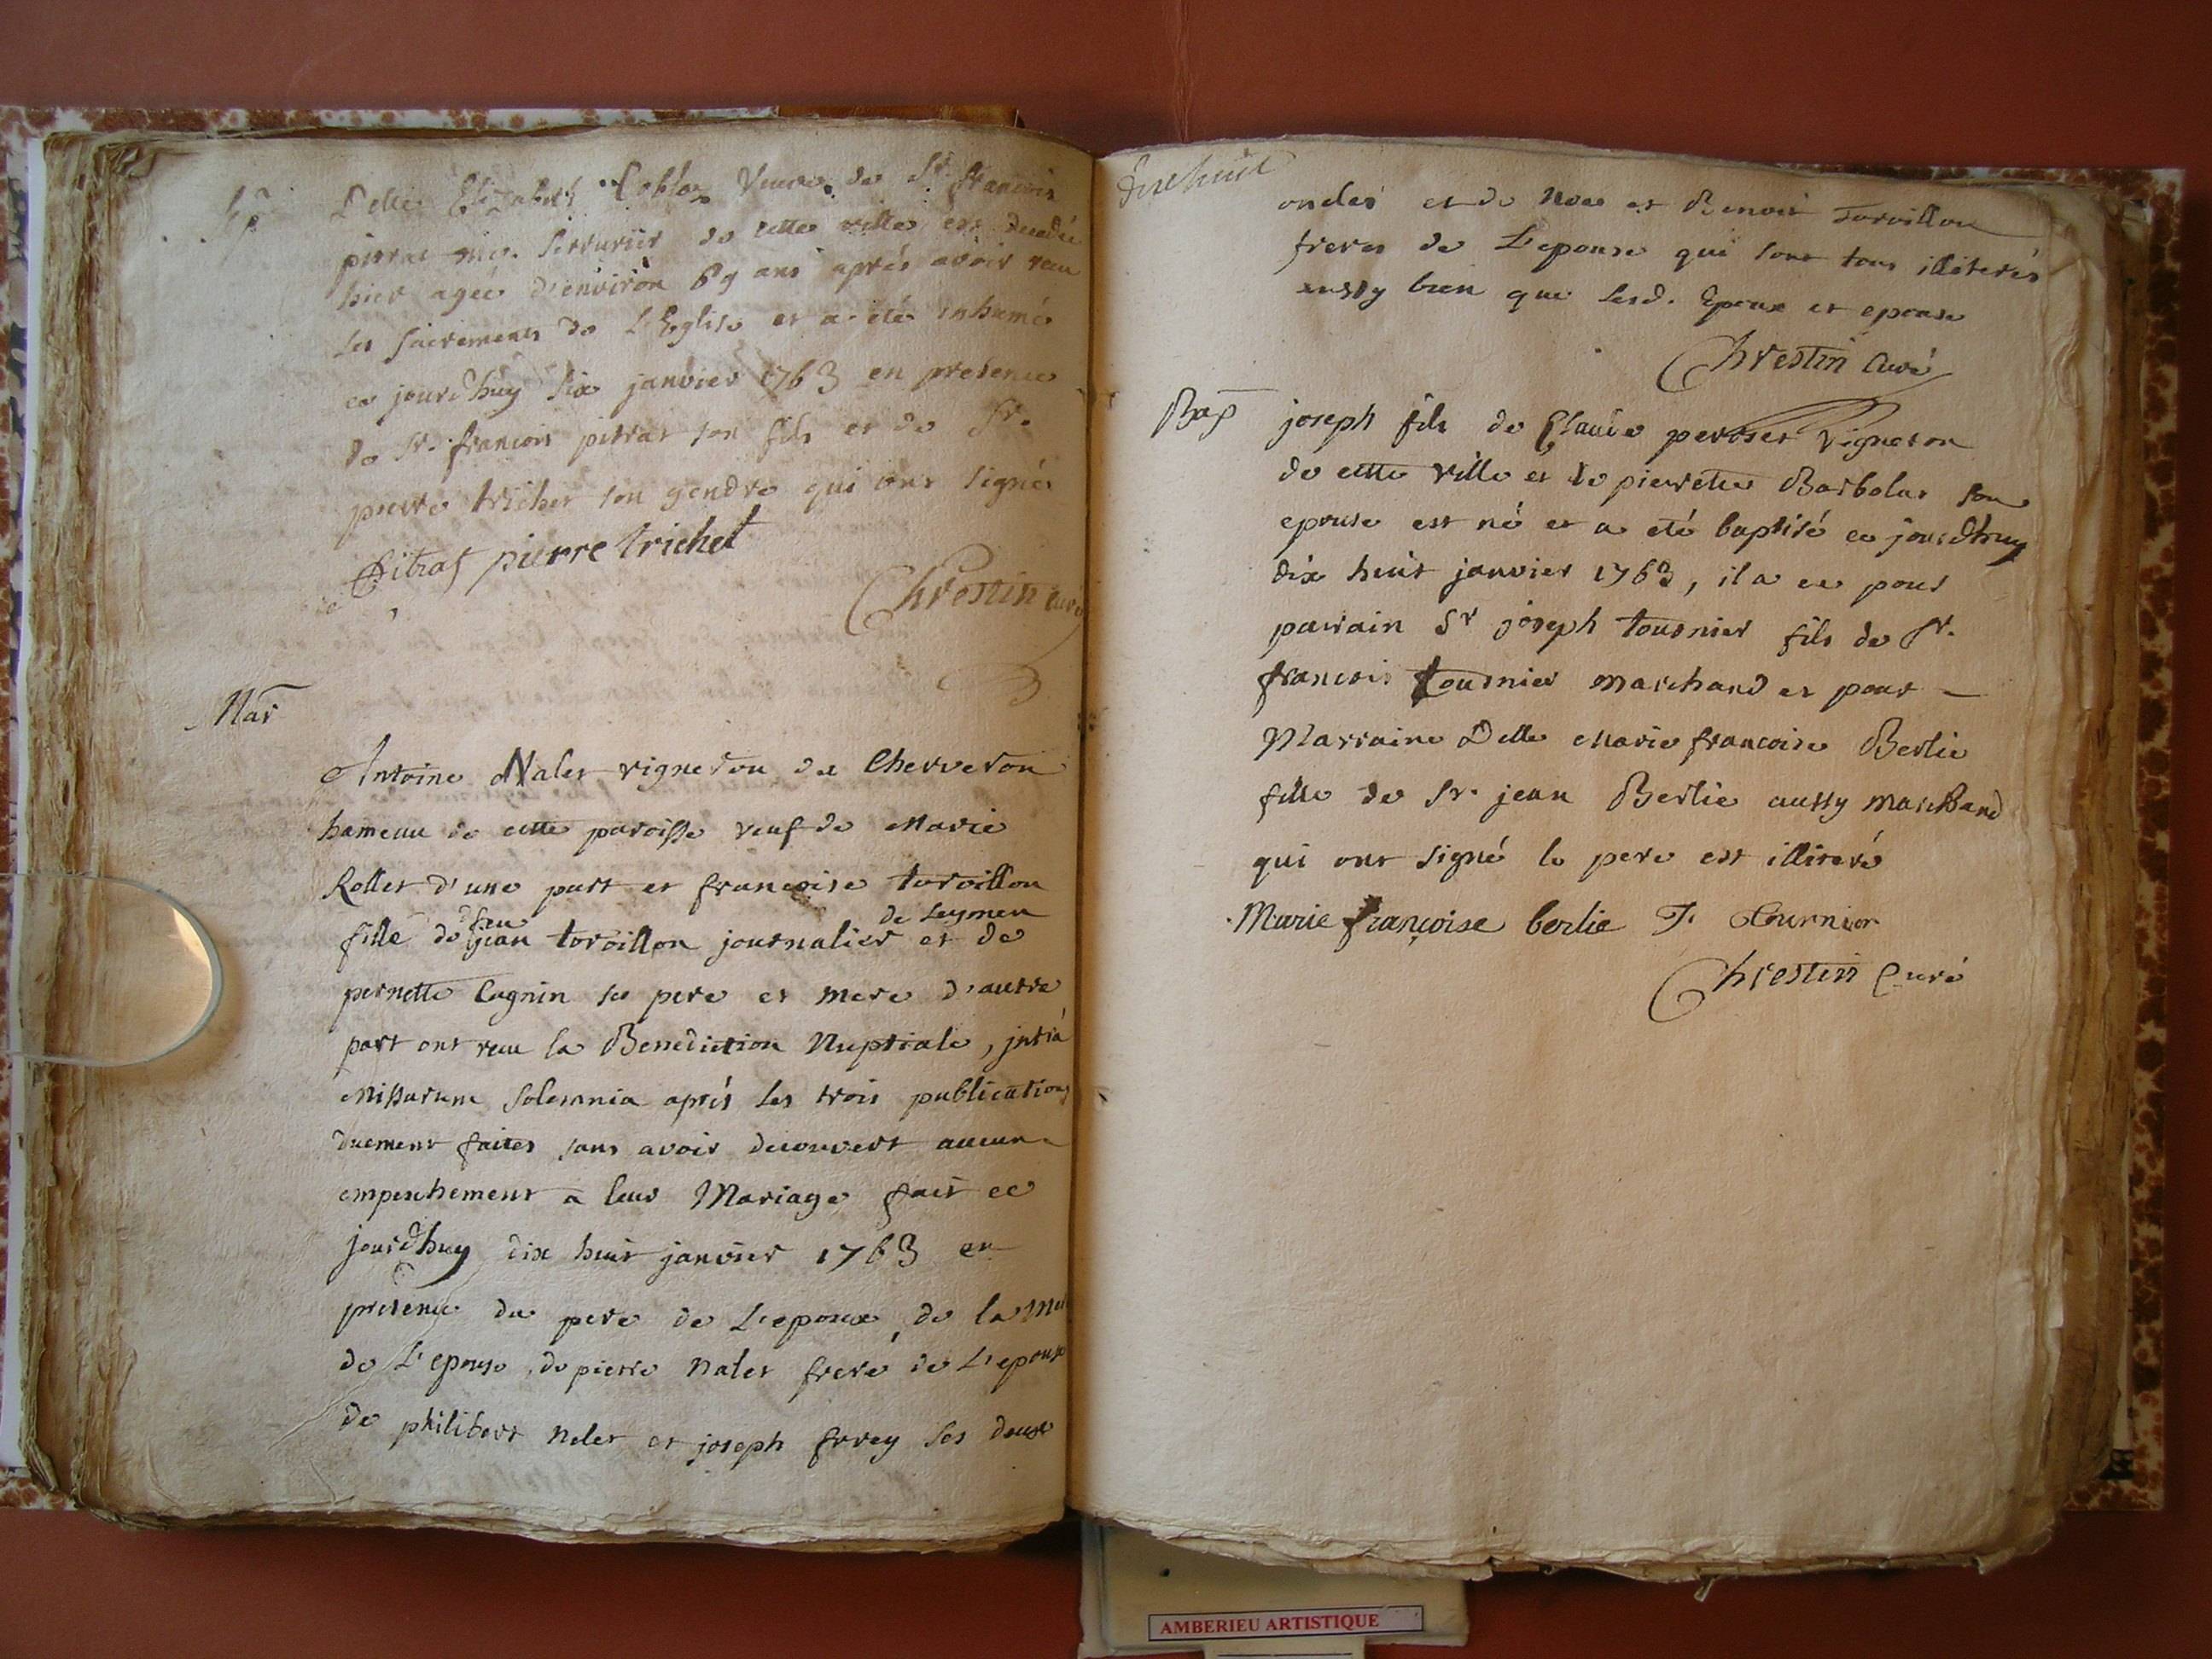 Sp.
Delle Elizabeth Veuve de Sr. francois
pitrat me. Serrurier de cette ville est decedée
hier agée d'environ 69 ans aprés avoir recu
les sacremens de L'Eglise et a eté inhumée
ce jourdhuy six janvier 1763 en presence
de Sr. francois pitrat son fils et de Sr.
pierre trichet son gendre qui ont signés
Pitrat pierre trichet
Chrestin Curé
Mar
Antoine Nalet vigneron du Cherveron
hameau de cette paroisse veuf de Marie
Rollet d'une part et francoise torvillon
feu de Leymen
fille de jean torvillon journalier et de
pernette Cagnin ses pere et mere d'autre
part ont recu la Benediction Nuptiale, intrà
Missarum Solemnia aprés les trois publications
duement faites sans avoir decouvert aucun
empechement a leur Mariage fait ce
jourdhuy dix huit janvier 1763 en
presence du pere de L'epoux, de la Mere
de L'epouse, de pierre Nalet frere de L'epoux
de philibert Nalet et joseph ses deux
Dix huit
oncles et de et Benoit Torvillon
freres de L'epouse qui sont tous illiterés
aussy bien que lesd. Epoux et epouse
Chrestin Curé
Bap
joseph fils de Claude perosset Vigneron
de cette ville et de pierrette Barbolat son
epouse est né et a eté baptisé ce jourdhuy
dix huit janvier 1763, il a eu pour
parrain Sr joseph tournier fils de Sr.
francois tournier marchand et pour
Marraine Delle Marie francoise Berlie
fille de Sr. jean Berlie aussy marchand
qui ont signé le pere est illiteré
Marie françoise berlie J. Tournier
Chrestin Curé
AMBERIEU ARTISTIQUE